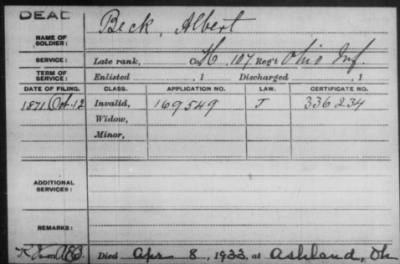 DEAD
NAME OF SOLDIER: Beck, Albert
SERVICE: Late rank, Co. H, 107 Reg't Ohio Inf.
TERM OF SERVICE: Enlisted , 1 Discharged , 1
DATE OF FILING. CLASS. APPLICATION NO. LAW. CERTIFICATE NO.
1871 Oct. 12 Invalid, 169549 J 336234
Widow,
Minor,
ADDITIONAL SERVICES:
REMARKS:
Died Apr 8, 1933, at Ashland, Oh